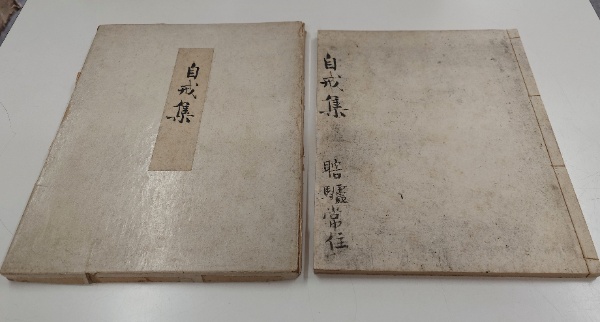 自戒集
自戒集
瞎驢常住